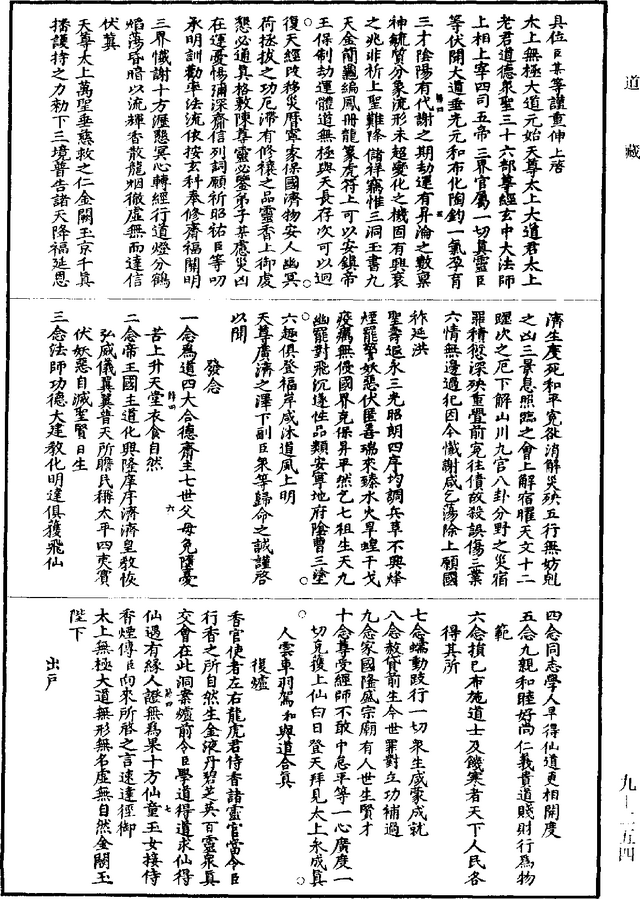 道藏
具位臣某等謹重伸上啓
太上無極大道元始天尊太上大道君太上
老君道德衆聖三十六部尊經玄中大法師
上相上宰四司五帝三界官屬一切真靈臣
等伏聞大道垂光元和布化陶鈞一氣孕育
三才陰陽有代謝之期劫運有昇淪之數稟
神毓質分象流形未超變化之機固有興衰
之兆非祈上聖難降儲祥竊惟三洞玉書九
天金簡龜編鳳冊龍篆虎符上可以安鎮帝
王保制劫運體道無極與天長存次可以迴
復天經改移災曆寧家保國濟物安人幽冥
荷拯拔之功厄滯有修禳之品靈香上御虔
懇必通真格敷陳尊靈必鑒弟子某慮災凶
在運憂惕彌深齋信列詞願祈昭祐臣等叨
承明訓勸率法流依按玄科奉修齋福開明
三界懺謝十方瀝懇冥心轉經行道燈分鶴
焰蕩昏暗以流輝香散龍烟徹虛無而達信
伏冀
天尊太上萬聖垂慈救之仁金闕玉京千真
播護持之力勑下三境普告諸天降福延恩
濟生度死和平寃敵消解災殃五行無妨剋
之凶三景息照臨之會上解宿曜天文十二
躔次之厄下解山川九宮八卦分野之災宿
罪積愆深殃重舋前寃往債故殺誤傷三業
六情無邊過犯因今懺謝咸乞蕩除上願國
祚延洪
聖壽遐永三光昭朗四序均調兵革不興烽
煙罷警妖惡伏匿善瑞來臻水火旱蝗干戈
疫癘無侵國界克保昇平然乞七祖生天九
幽罷對飛沉遂性品類安寧地府陰曹三塗
六趣俱登福岸咸沐道風上明
天尊廣濟之澤下副臣衆等歸命之誠謹啓
以聞
發念
一念為道四大合德齋主七世父母免墮憂
苦上升天堂衣食自然
二念帝王國主道化興隆庠序濟濟皇教恢
弘威儀翼翼普天所瞻民稱太平四夷賓
伏妖惡自滅聖賢日生
三念法師功德大建教化明達俱獲飛仙
四念同志學人早得仙道更相開度
五念九親和睦好尚仁義貴道賤財行為物
範
六念損己布施道士及饑寒者天下人民各
得其所
七念蠕動跂行一切衆生咸蒙成就
八念赦貸前生今世罪對立功補過
九念家國隆盛宗廟有人世生賢才
十念尊受經師不敢中怠平等一心廣度一
切克獲上仙白日登天拜見太上永成真
人雲車羽駕和與道合真
復爐
香官使者左右龍虎君侍香諸靈官當令臣
行香之所自然生金液丹碧芝英百靈衆真
交會在此洞案爐前令臣學道得道求仙得
仙遇有緣人證無為果十方仙童玉女接侍
香煙傳臣向來所啓之言速達徑御
太上無極大道無形無名虛無自然金闕玉
陛下
出戶
九—二五四